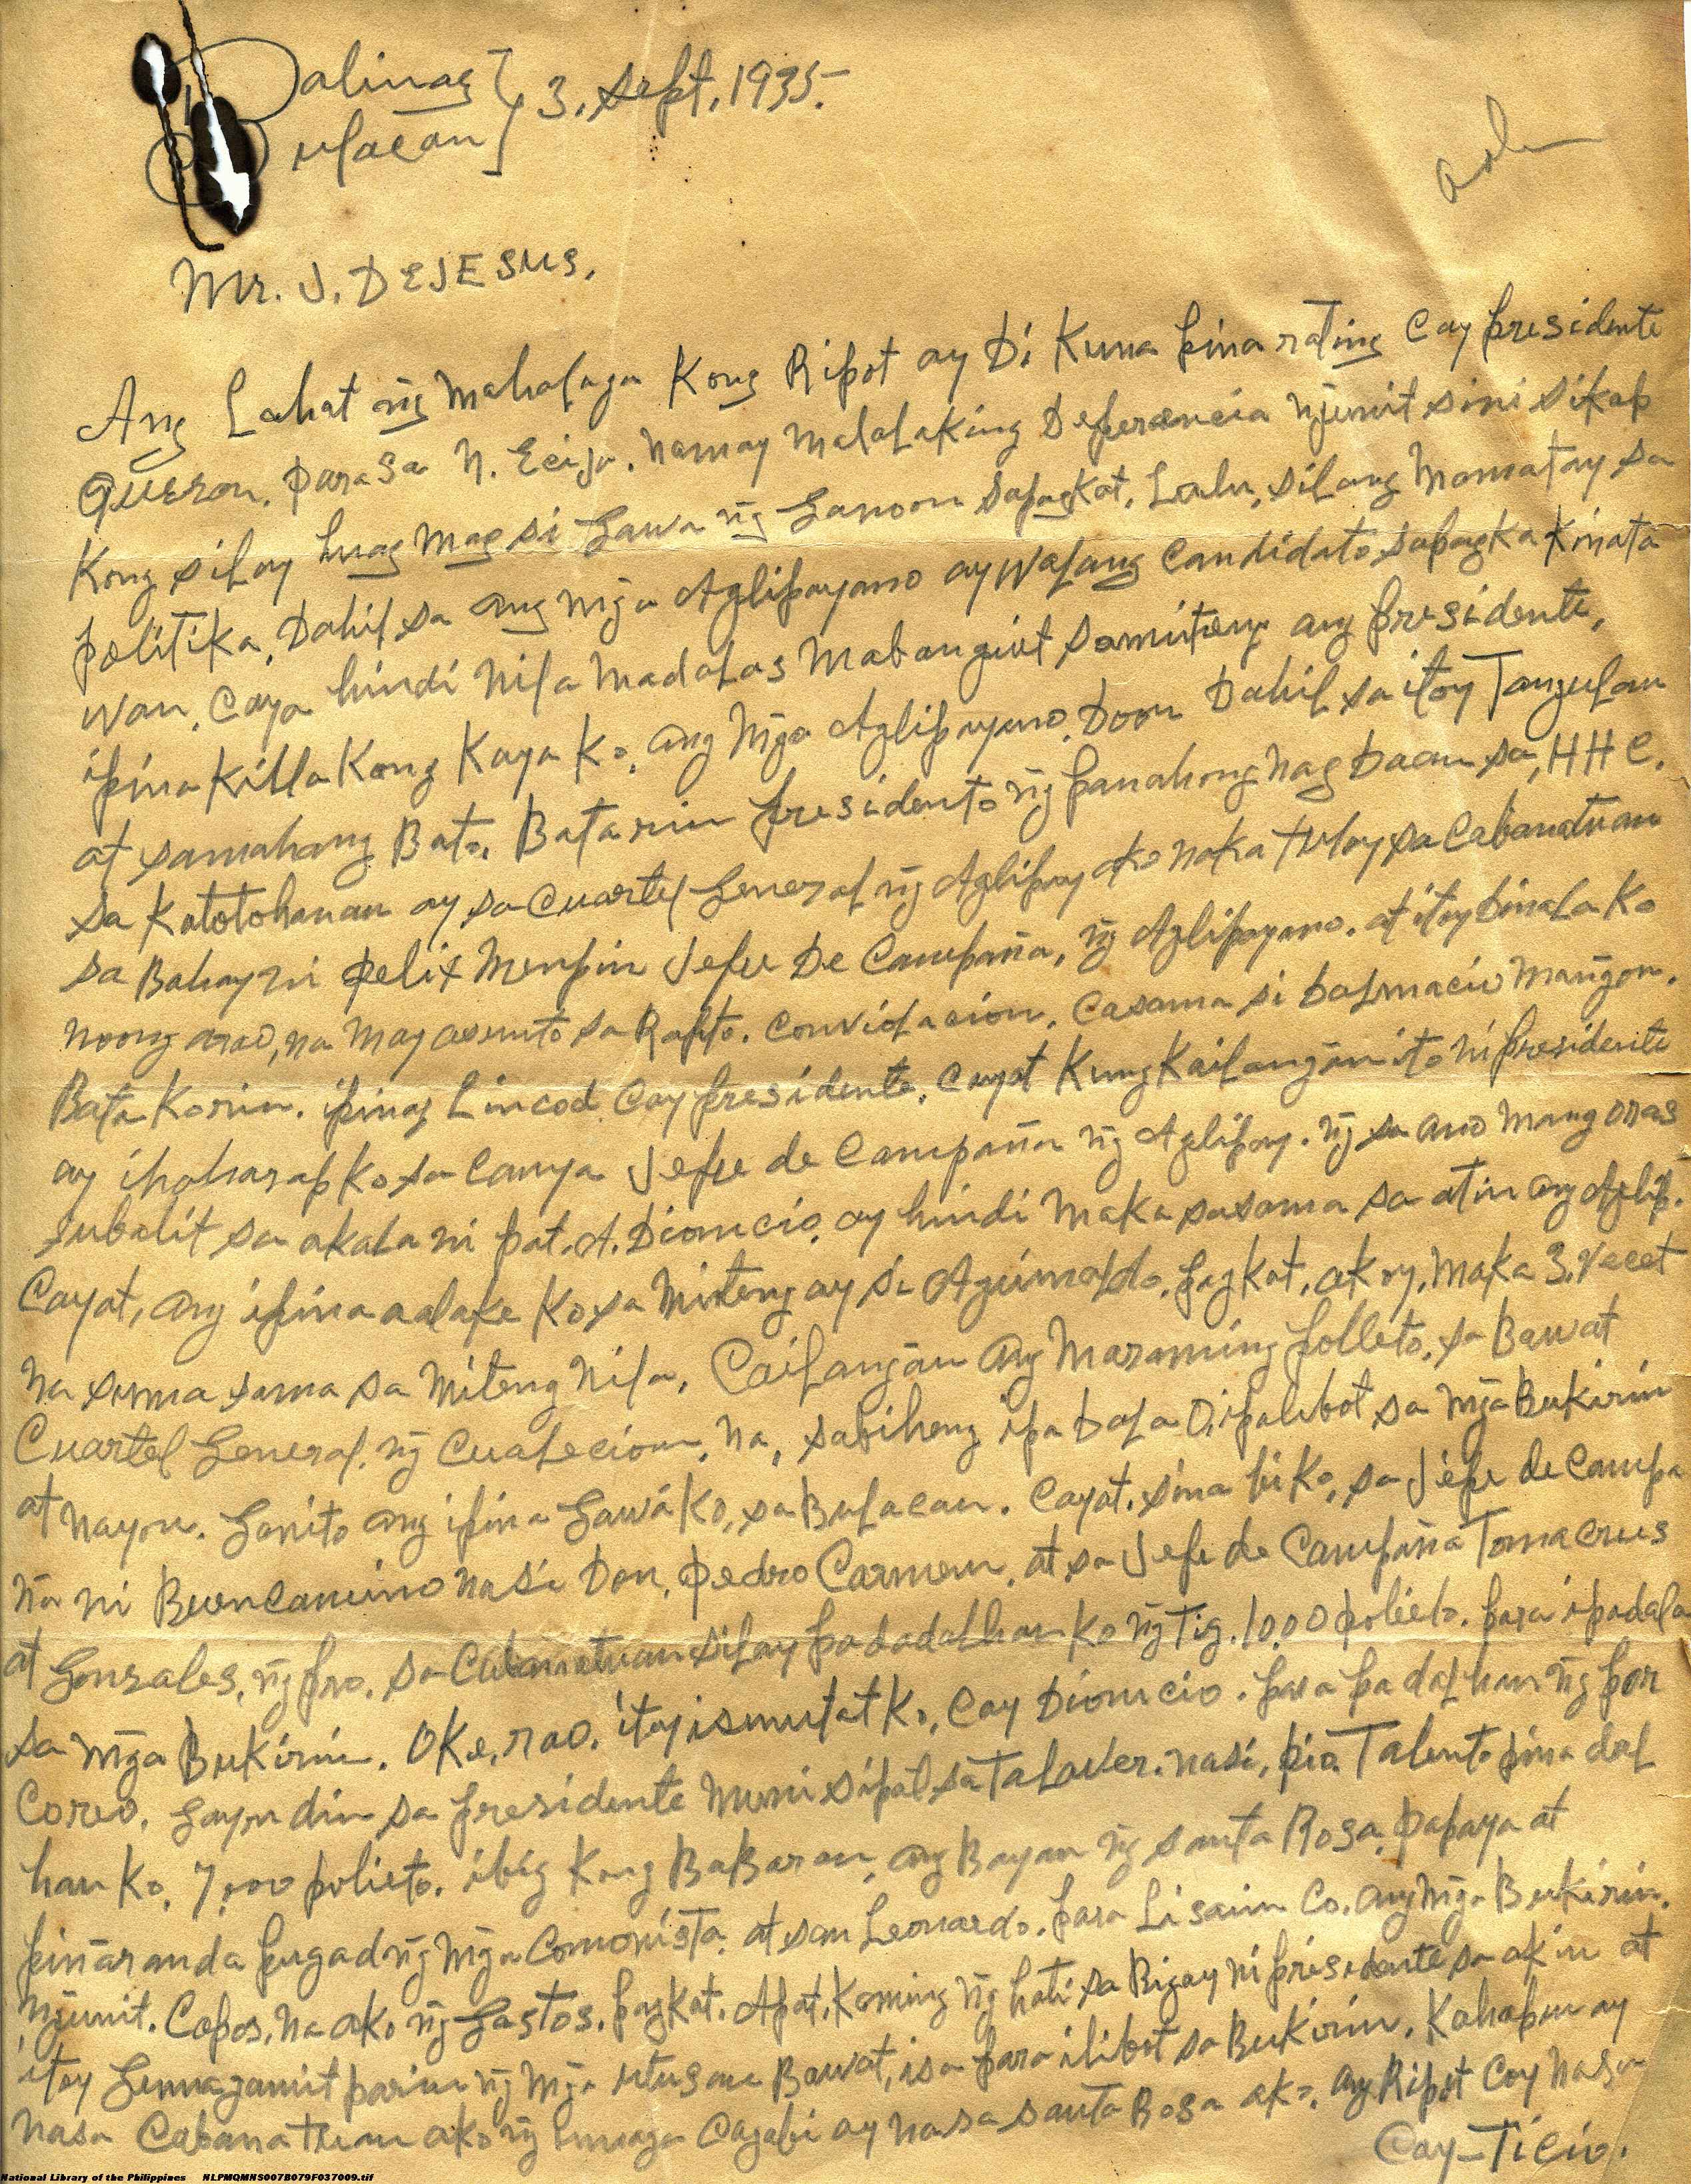 Balinag
Bulacan } 3, Sept, 1935.
Mr. J. DEJESUS.
Ang Lahat ng mahalaga Kong Ripot ay Di Kuna pina rating Cay presidente
Quezon. para sa N. Ecija. Namay malalaking Deferencia Ngunit sini sikap
Kong silay huag mag si Gawa ng Ganoon sapagkat. Lalu, silang Mamatay sa
politika, Dahil sa ang mga Aglipayano ay walang Candidato sapagka Kinata
wan. Caya hindi Nila madalas mabanguit samiteng ang presidente,
ipina Killa Kong Kaya Ko, ang Mga Aglipayano. Doon Dahil sa itoy Tangulan
at samahang Bata. Bata rin presidente ng panahong Nag Daan sa, HHC.
Sa Katotohanan ay sa Cuartel General ng Aglipay Ako naka tuloy sa Cabanatuan
sa Bahay ni Felix Jefe De Campaña, ng Aglipayano. at itoy Dinala Ko
noong arao, na may asunto sa Convidacion. Casama si Dalmacio
Bata Korin. ipinag Lincod Cay presidente. Cayat Kung Kailangan ito ni presidente
ay ihaharap Ko sa Canya Jefe de Campaña ng Aglipay. ng sa ano mang oras
subalit sa akala ni pat. A. Dionicio, ay hindi Maka sasama sa atin ang Aglip.
Cayat, ang ipina aalake Ko sa Miteng ay si Aguinaldo. pagkat, akoy, Maka 3. Vecet
na suma sama sa Miteng Nila. Cailangan ang Maraming folleto, sa Bawat
Cuartel General. ng Cualecion. Na, sabiheng ipa Dala O, ipalibot sa Mga Bukirin
at Nayon. Ganito ang ipina Gawa Ko, sa Bulacan. Cayat. sina bi Ko, sa Jefe de Campa
ña ni Buencamino Nasi Don, Pedro Carmen. at sa Jefe de Campaña Toma Crus
at Gonzales, ng pro. sa Cabanatuan silay padadalhan Ko ng Tig. 1000 polieto. para ipadala
sa Mga Bukirin. OKe, rao. itoy isinulat Ko, Cay Dionicio. para pa dalhan ng por
Coreo. Gayon din sa presidente Municipal sa Talaver. Nasi, pio. Talento pina dal
han Ko, 7,000 polieto. ibig Kong BaBaran, ang Bayan ng Santa Rosa, papaya at
piñaranda pugad ng Mga Comonista, at san Leonardo. para Li sanin Co. ang Mga Bukirin.
Ngunit. Capos. na ako ng Gastos. pagkat. Apat, Kaming ng hati sa Bigay ni presidente sa akin at
itoy Gumagamit parin ng Mga utusan Bawat, isa para ilibot sa Bukirin. Kahapon ay
nasa Cabanatuan ako ng umaga Cagabi ay Nasa Santa Rosa ako. ang Ripot Coy Nasa
Cay-Ticio.
National Library of the Philippines NLPMQMNS007B079F037009.tif